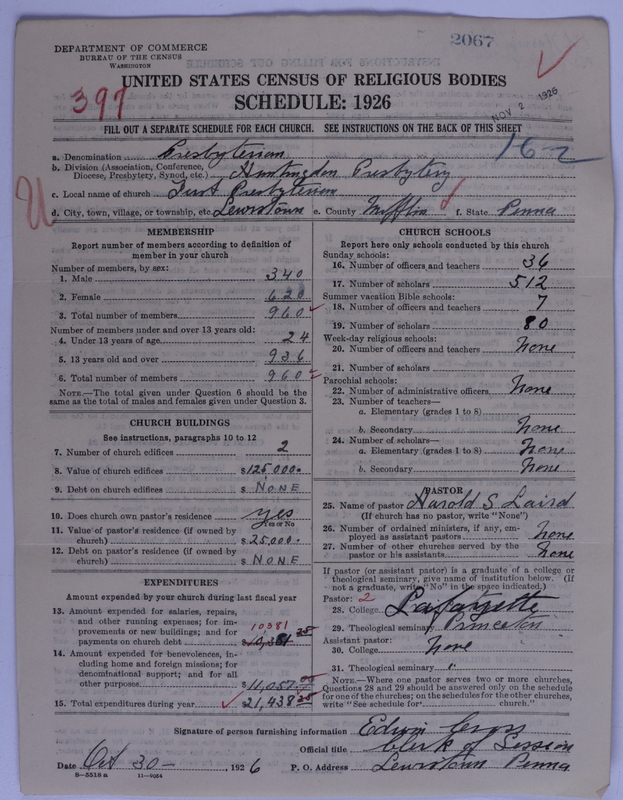 2067
DEPARTMENT OF COMMERCE
BUREAU OF THE CENSUS
WASHINGTON
UNITED STATES CENSUS OF RELIGIOUS BODIES
397
SCHEDULE: 1926
NOV 2 1926
FILL OUT A SEPARATE SCHEDULE FOR EACH CHURCH. SEE INSTRUCTIONS ON THE BACK OF THIS SHEET
16-2
a. Denomination Presbyterian
b. Division (Association, Conference, Diocese, Presbytery, Synod, etc.) Huntingdon Presbytery
c. Local name of church First Presbyterian
d. City, town, village, or township, etc. Lewistown e. County Mifflin f. State Penna
MEMBERSHIP
Report number of members according to definition of
member in your church
Number of members, by sex:
1. Male 340
2. Female 620
3. Total number of members 960
Number of members under and over 13 years old:
4. Under 13 years of age 24
5. 13 years old and over 936
6. Total number of members 960
NOTE.—The total given under Question 6 should be
same as the total of males and females given under Question 3.
CHURCH BUILDINGS
See instructions, paragraphs 10 to 12
7. Number of church edifices 2
8. Value of church edifices $125,000.
9. Debt on church edifices $ NONE
10. Does church own pastor's residence yes
Yes or No
11. Value of pastor's residence (if owned by
church) $25,000.
12. Debt on pastor's residence (if owned by
church) $ NONE
EXPENDITURES
Amount expended by your church during last fiscal year
13. Amount expended for salaries, repairs,
and other running expenses; for im-
provements or new buildings; and for
payments on church debt 10381 $10,381 25
14. Amount expended for benevolences, in-
cluding home and foreign missions; for
denominational support; and for all
other purposes $11,057.00
15. Total expenditures during year $21,438 25
CHURCH SCHOOLS
Report here only schools conducted by this church
Sunday schools:
16. Number of officers and teachers 36
17. Number of scholars 512
Summer vacation Bible schools:
18. Number of officers and teachers 7
19. Number of scholars 80
Week-day religious schools:
20. Number of officers and teachers none
21. Number of scholars
Parochial schools:
22. Number of administrative officers none
23. Number of teachers—
a. Elementary (grades 1 to 8)
b. Secondary none
24. Number of scholars—
a. Elementary (grades 1 to 8) none
b. Secondary none
PASTOR
25. Name of pastor Harold S Laird
(If church has no pastor, write "None")
26. Number of ordained ministers, if any, em-
ployed as assistant pastors none
27. Number of other churches served by the
pastor or his assistants none
If pastor (or assistant pastor) is a graduate of a college or
theological seminary, give name of institution below. (If
not a graduate, write "No" in the space indicated.)
Pastor: 2
28. College Lafayette
29. Theological seminary Princeton
Assistant pastor:
30. College none
31. Theological seminary "
NOTE.—Where one pastor serves two or more churches,
Questions 28 and 29 should be answered only on the schedule
for one of the churches; on the schedules for the other churches,
write "See schedule for church."
Signature of person furnishing information Edwin
Official title Clerk of Session
Date Oct 30-, 1926 P. O. Address Lewistown Penna
8-5518 a 11-9264